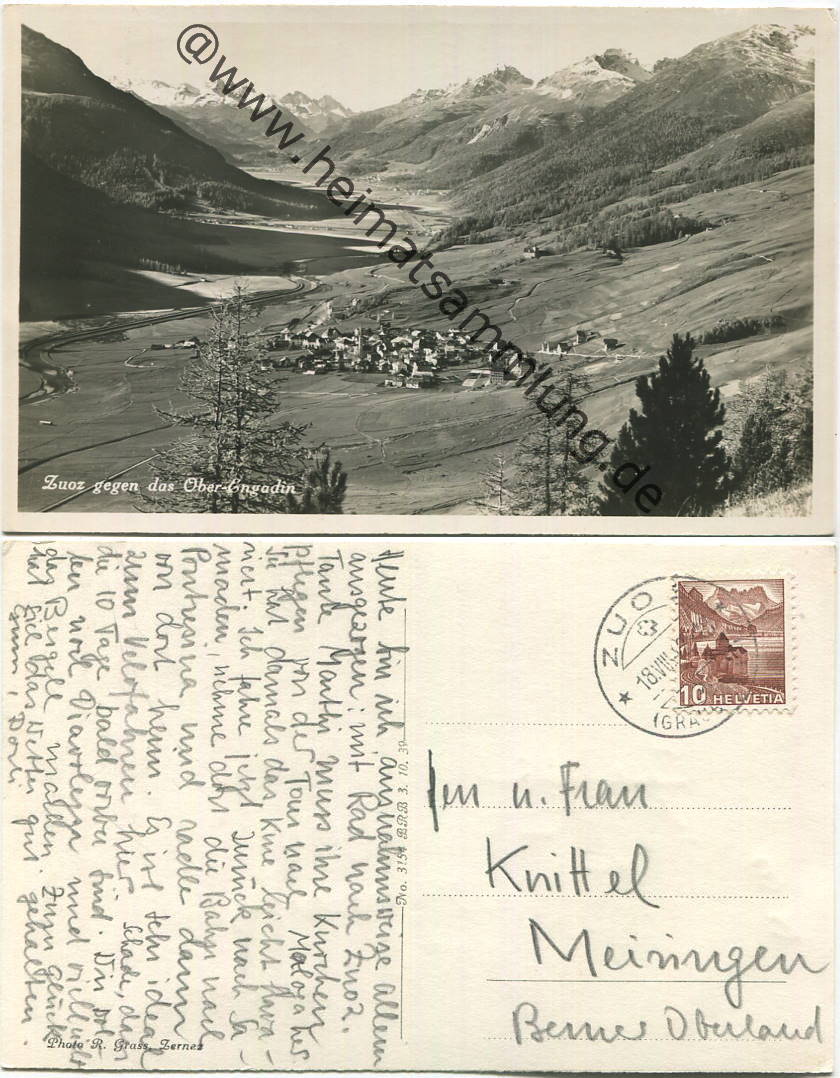 @www.heimatsammlung.de
Zuoz gegen das Ober-Engadin
Heute bin ich ausnahmsweise allein
ausgezogen: mit Rad nach Zuoz.
Tante Marthi muss ihre Knochen
pflegen von der Tour nach Maloja her.
Sie hat damals das Knie leicht
niert. Ich fahre jetzt zurück nach Sa-
maden, nehme dort die Bahn nach
Pontresina und radle dann
von dort heim. Es ist sehr ideal
zum Velofahren hier. Schade, dass
die 10 Tage bald vorbei sind. Wir woll-
ten noch Diavolezza und vielleicht
das Bergell machen. Zum Glück
hat sich das Wetter gut gehalten.
Dorli
Photo R. Grass, Zernez
No. 3154 BRB 3. 10. 39
ZUOZ
18.VIII
(GRA
10 HELVETIA
u. Frau
Knittel
Meiringen
Berner Oberland